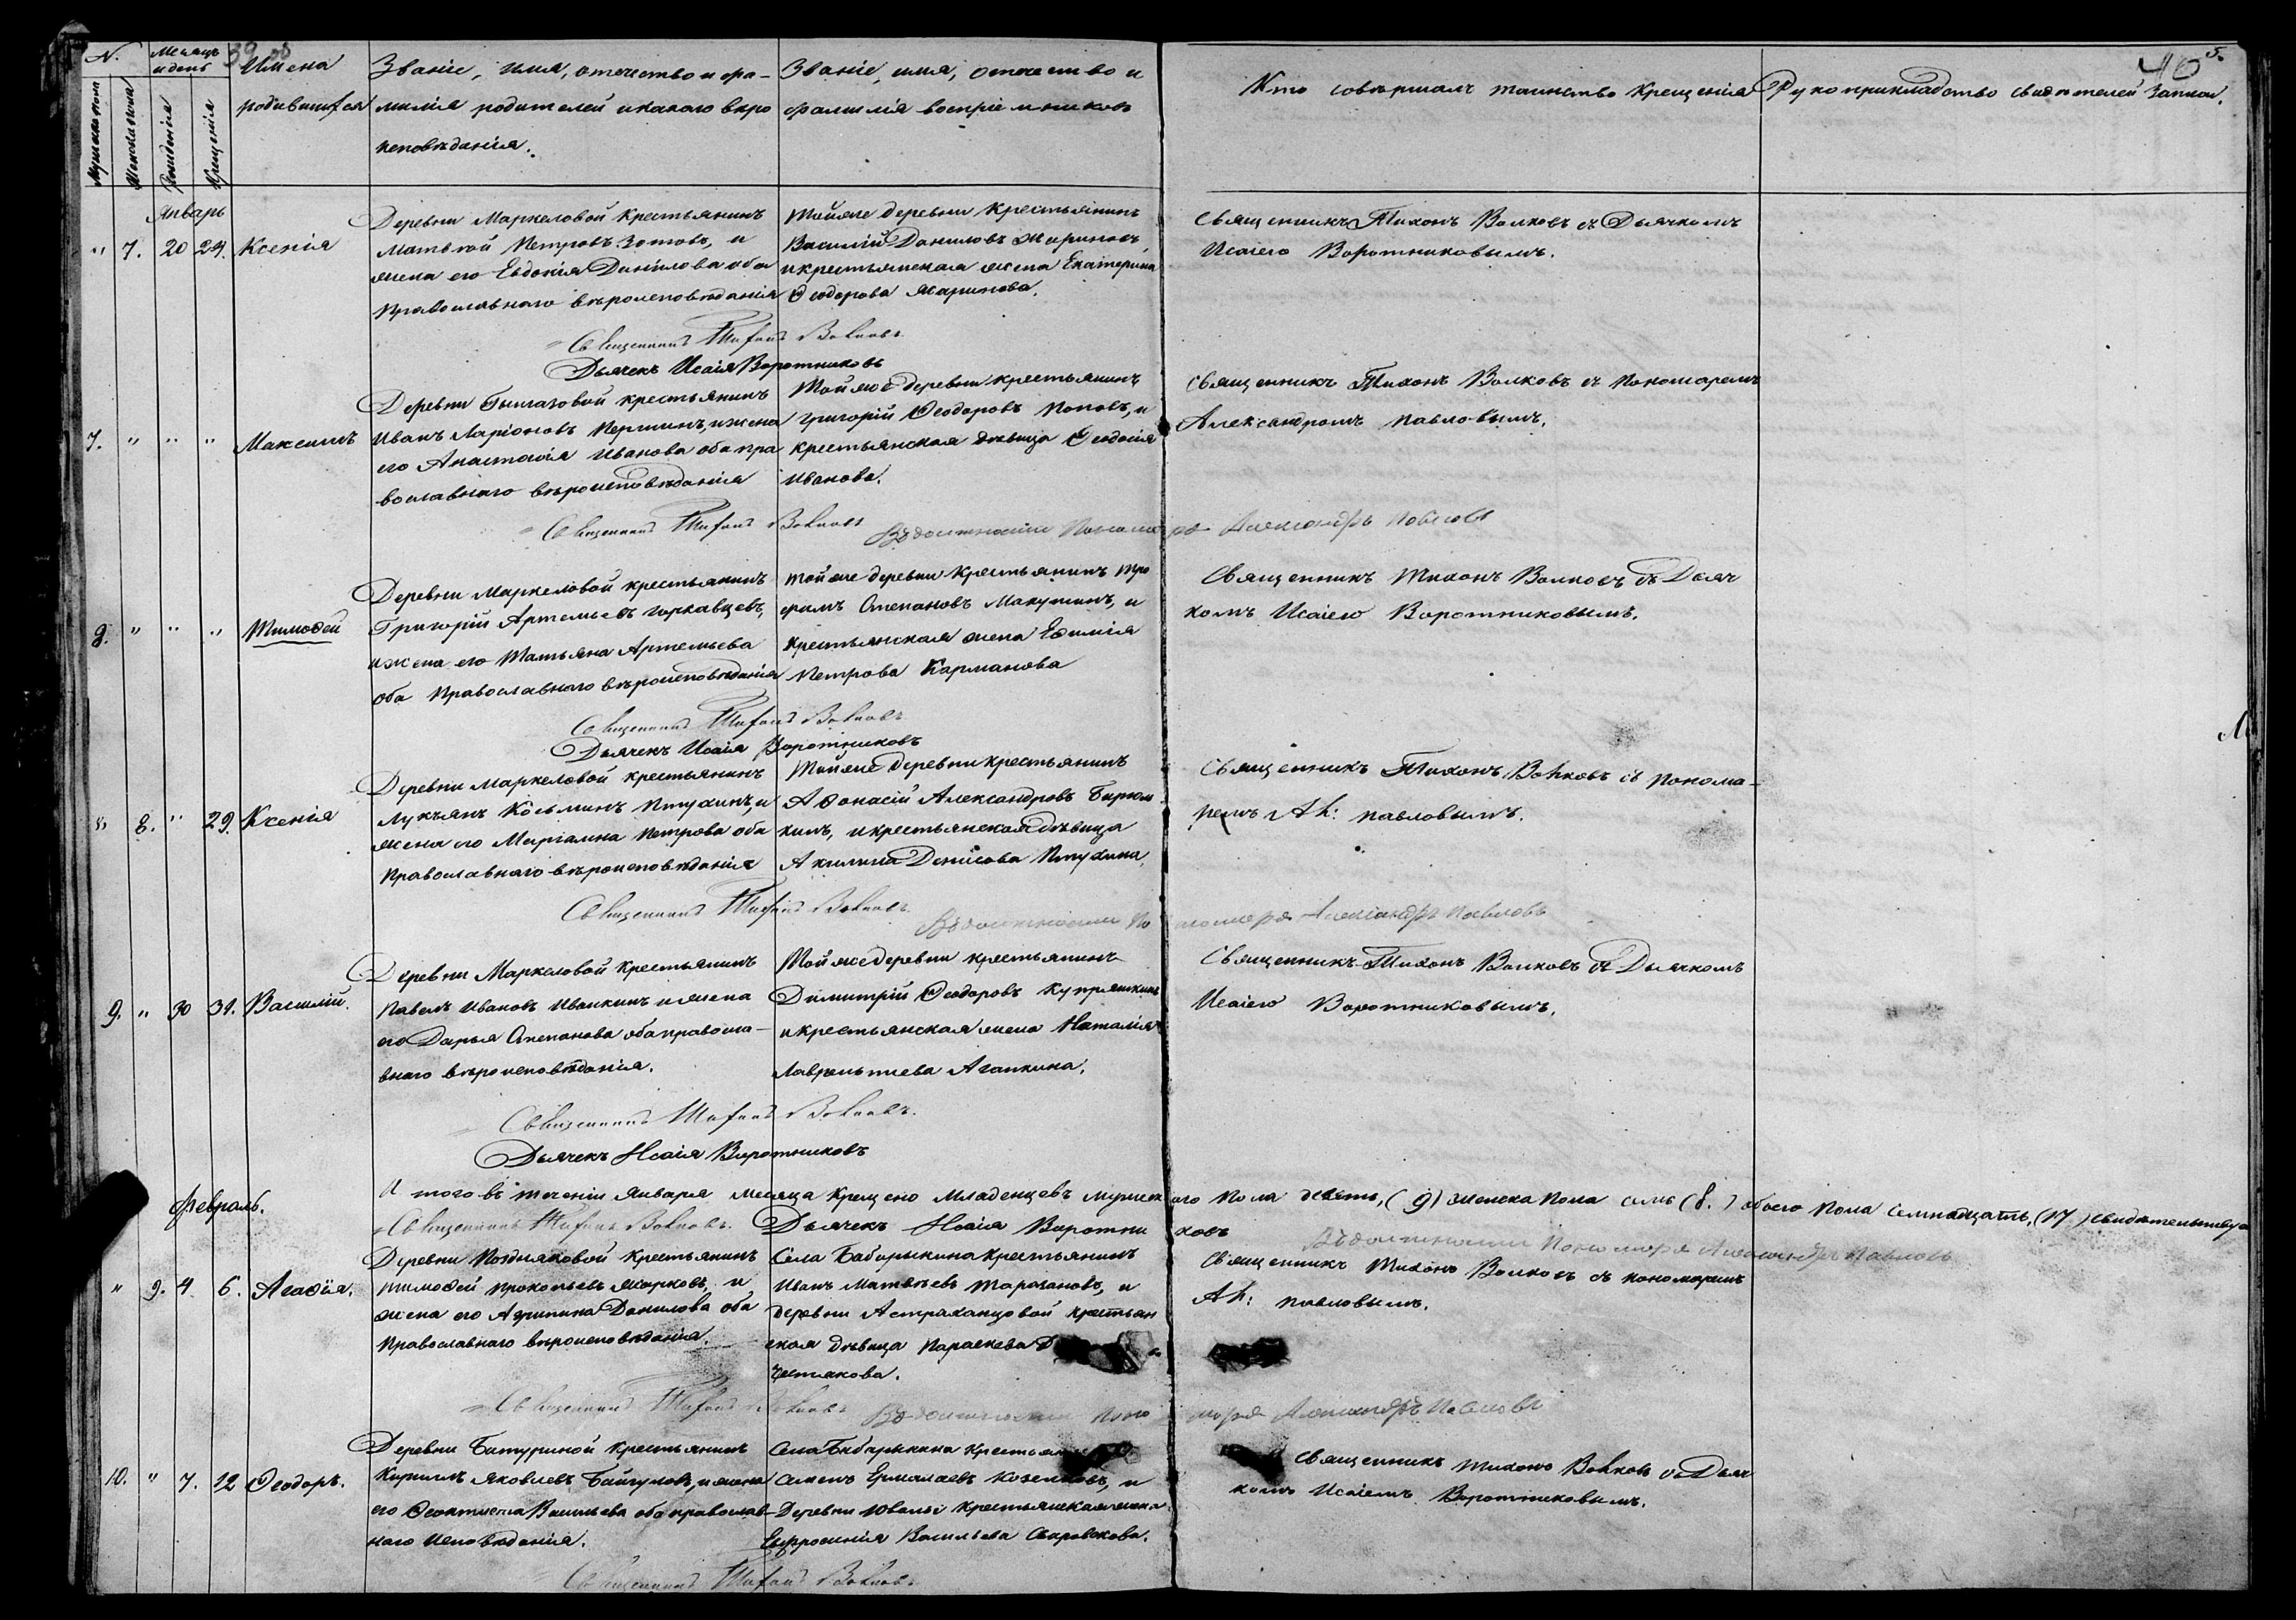 39 об
40
5.
N.
Месяцъ и день
Мужеска пола
Женска пола
Рожденія
Крещенія
Имена
родившихся
Званіе, имя, отечество и фа-
милія родителей и какого веро
исповѣданія.
Званіе, имя, отечество и
фамилія воспріемниковъ
Кто совершалъ таинство Крещенія
Рукоприкладство свидѣтелей записи.
Январь
" 7. 20 24. Ксенія
Деревни Маркеловой Крестьянинъ
Матвѣй Петровъ Зотовъ, и
жена его Евдокія Данілова оба
Православнаго вѣроисповѣданія
Тойже деревни Крестьянинъ
Василій Даниловъ Жариновъ,
и крестьянская жена Екатерина
Ѳеодорова Жаринова.
Священникъ Тихонъ Волковъ съ Дьячкомъ
Исаіею Воротниковымъ.
Священникъ Тихонъ Волковъ
Дьячекъ Исаія Воротниковъ
7. " " " Максимъ
Деревни крестьянинъ
Иванъ Ларіоновъ Першинъ, и жена
его Анастасія Иванова оба пра
вославнаго вѣроисповѣданія
Тойже деревни крестьянинъ
Григорій Ѳеодоровъ Поповъ, и
крестьянская дѣвица Ѳеодосія
Иванова.
Священникъ Тихонъ Волковъ съ Пономаремъ
Александромъ Павловымъ.
Священникъ Тихонъ Волковъ
Въ должности Пономаря Александръ Павловъ
8. " " " Тимоѳей
Деревни Маркеловой крестьянинъ
Григорій Артемьевъ Горкавцевъ,
и жена его Татьяна Артемьева
оба Православнаго вѣроисповѣданія
Тойже деревни Крестьянинъ Тро
фимъ Степановъ Макушинъ, и
крестьянская жена Ефимія
Петрова Карманова
Священникъ Тихонъ Волковъ съ Дьяч
комъ Исаіею Воротниковымъ.
Священникъ Тихонъ Волковъ
Дьячекъ Исаія Воротниковъ
" 8. " 29. Ксенія
Деревни Маркеловой крестьянинъ
Лукъянъ Козьминъ Птухинъ, и
жена его Маріамна Петрова оба
Православнаго вѣроисповѣданія
Тойже деревни крестьянинъ
Аѳонасій Александровъ Бирюл
кинъ, и крестьянская дѣвица
Акилина Денисова Птухина.
Священникъ Тихонъ Волковъ съ Понома-
ремъ Ал: Павловымъ.
Священникъ Тихонъ Волковъ
Въ должности Пономаря Александръ Павловъ
9. " 30 31. Василій.
Деревни Маркеловой Крестьянинъ
Павелъ Ивановъ Иванкинъ и жена
его Дарья Степанова оба правосла-
внаго вѣроисповѣданія.
Тойже деревни крестьянинъ
Димитрій Ѳеодоровъ Купряшкинъ
и крестьянская жена Наталія
Лаврентиева Агапкина.
Священникъ Тихонъ Волковъ съ Дьячкомъ
Исаіею Воротниковымъ.
Священникъ Тихонъ Волковъ.
Дьячекъ Исаія Воротниковъ
Итого въ теченіи Января месяца Крещено Младенцевъ мужескаго Пола девять, (9) женска Пола семь (8.) обоего Пола семнадцать, (17) свидетельствуем
Священникъ Тихонъ Волковъ. Дьячекъ Исаія Воротниковъ
Въ должности Пономаря Александръ Павловъ
Февраль.
" 9. 4 6. Агаѳія.
Деревни Поздняковой Крестьянинъ
Тимоѳей Прокопьевъ Жарковъ, и
жена его Агрипина Данилова оба
Православнаго вѣроисповѣданія.
Села Бабарыкина Крестьянинъ
Иванъ Матвѣевъ Таракановъ, и
деревни Астраханцовой Крестьян
ская дѣвица Параскева Д
Честнакова.
Священникъ Тихонъ Волковъ съ пономаремъ
Ал: Павловымъ.
Священникъ Тихонъ Волковъ
Въ должности Пономаря Александръ Павловъ
10. " 7. 12 Ѳеодоръ.
Деревни Батуриной Крестьянинъ
Кирилъ Яковлевъ Байгуловъ, и жена
его Ѳеоктиста Васильева оба православ-
наго исповѣданія.
Села Бабарыкина Крестьянинъ
Семенъ Ермалаевъ Козелковъ, и
Деревни Крестьянская жена
Евфросинія Васильева Скаровкова.
Священникъ Тихонъ Волковъ съ Дьяч
комъ Исаіемъ Воротниковымъ.
Священникъ Тихонъ Волковъ